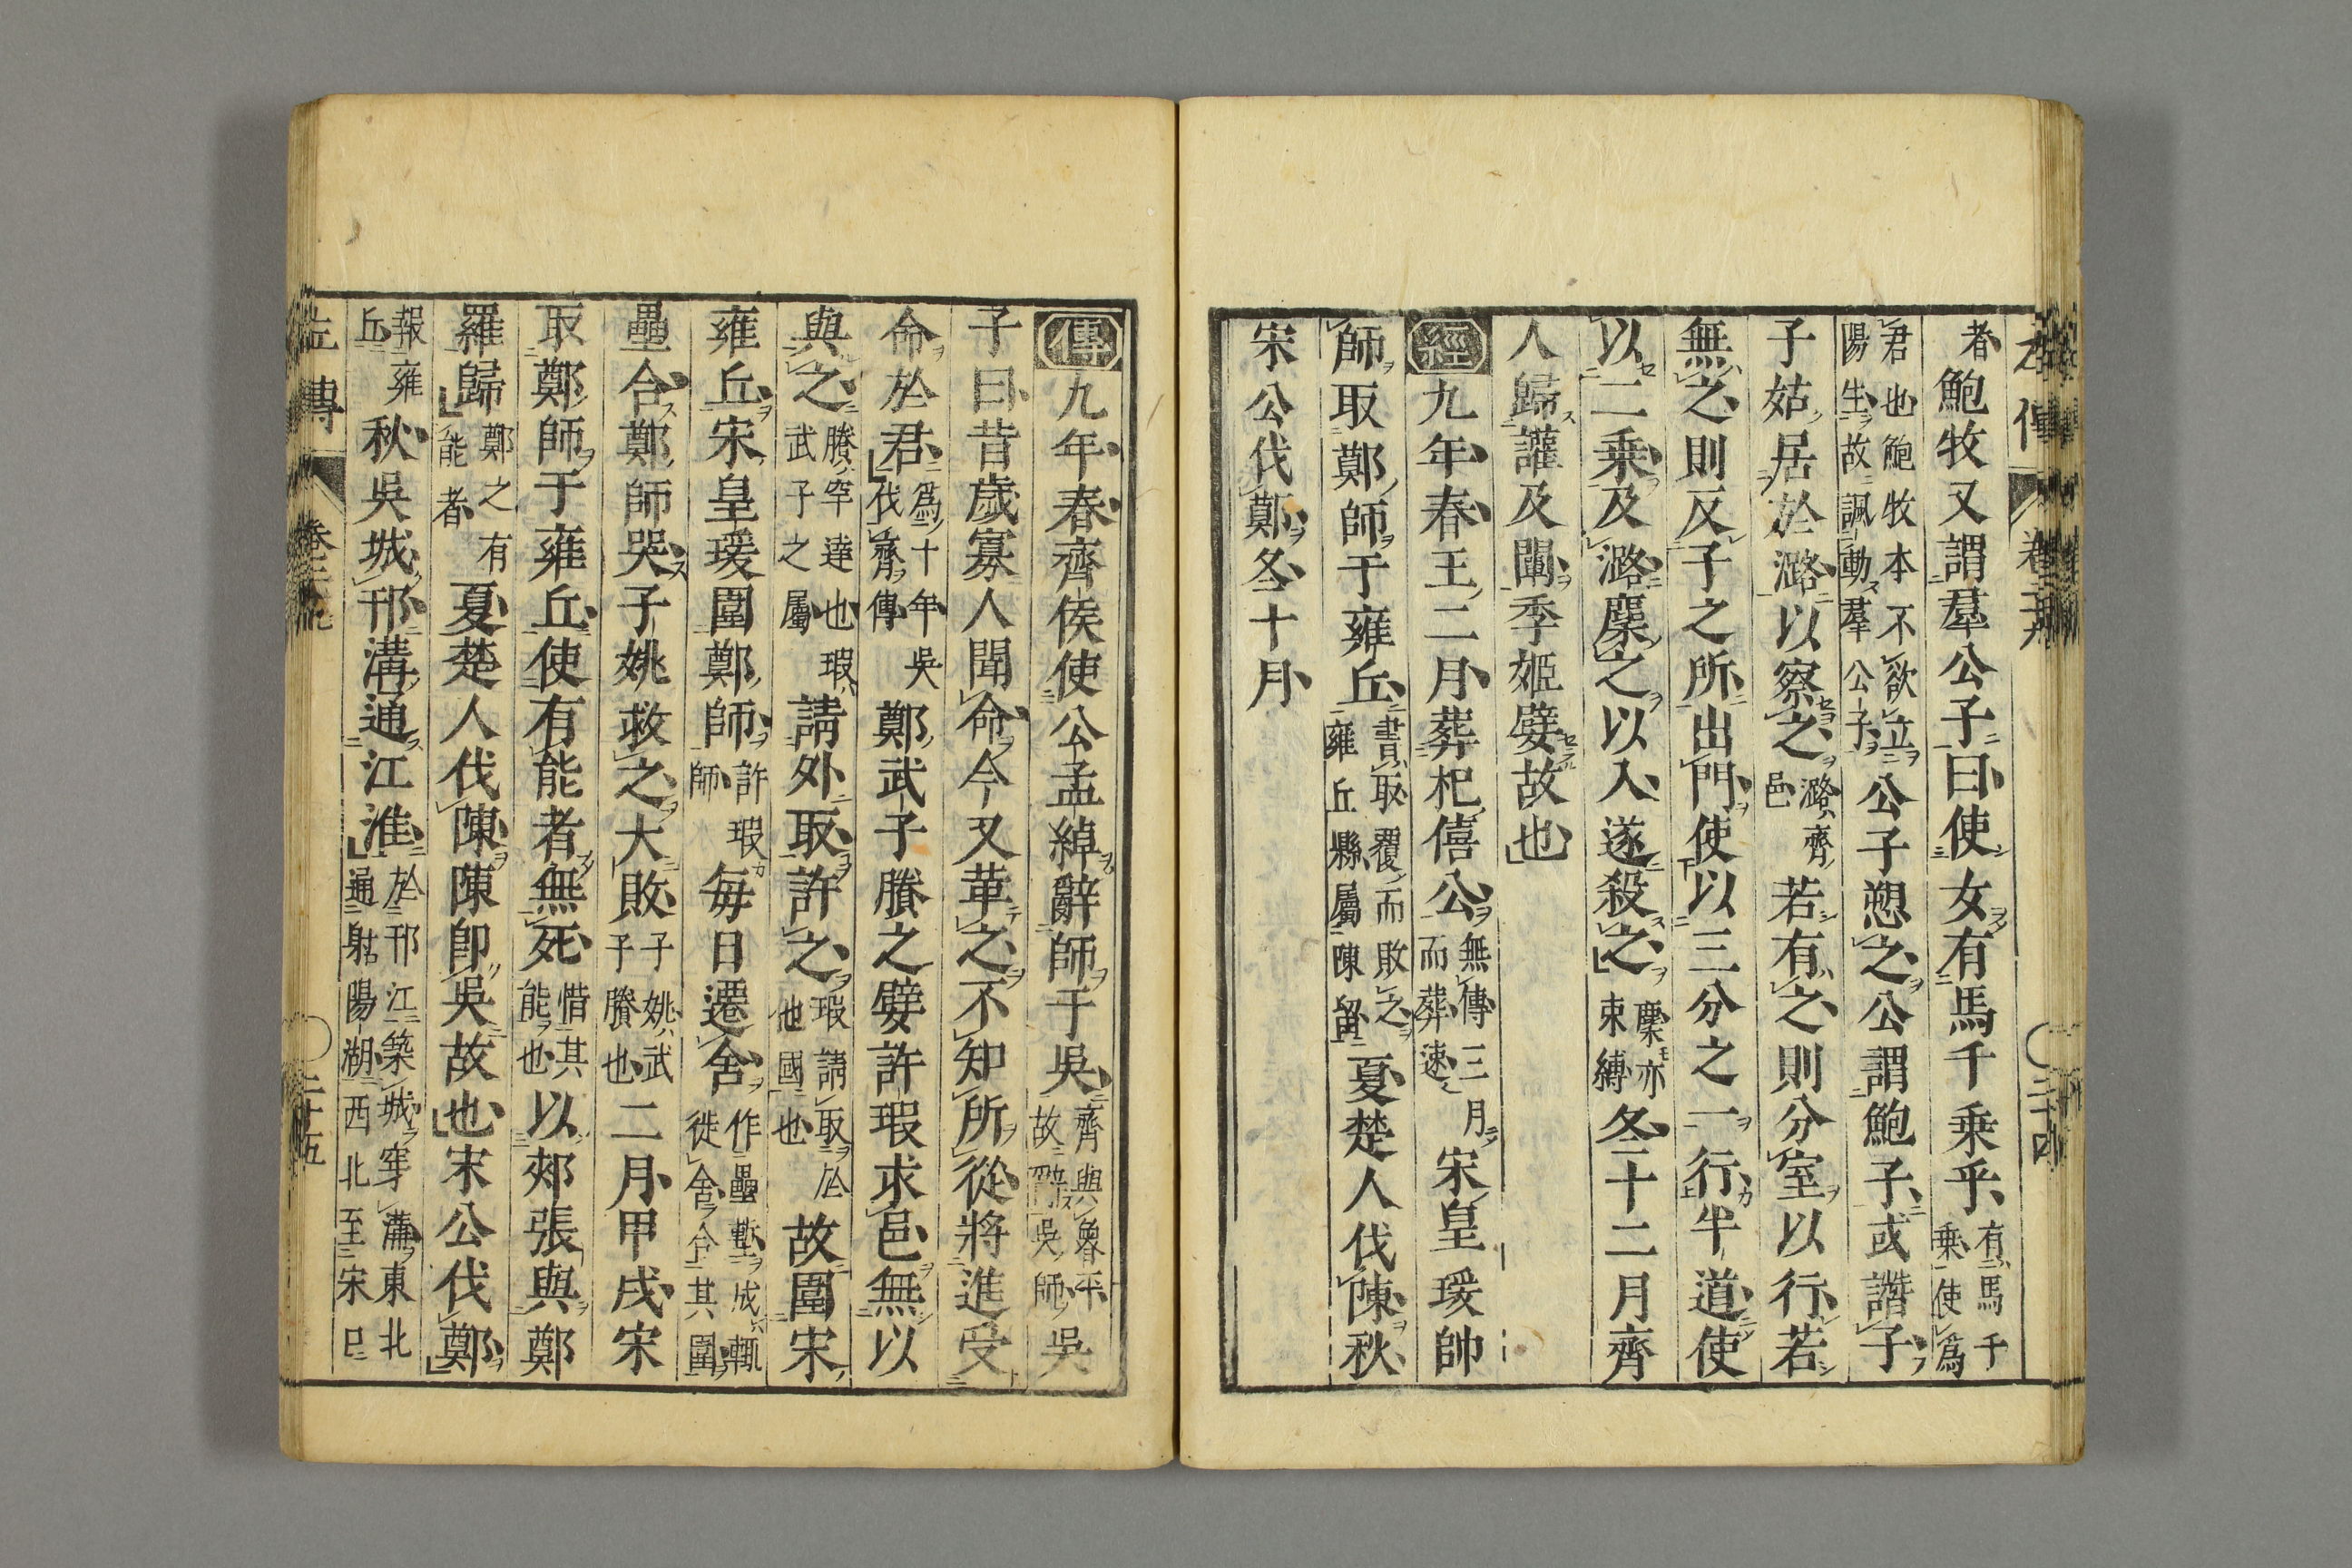 左傳 卷二十九 二十四
者鮑牧又謂羣公子曰使女有馬千乘乎有馬千乘使爲
君也鮑牧本不欲立陽生故諷動羣公子公子愬之公謂鮑子或譖子
子姑居於潞以察之潞齊邑若有之則分室以行若
無之則反子之所出門使以三分之一行半道使
以二乘及潞麇之以入遂殺之麇亦束縛冬十二月齊
人歸讙及闡季姬嬖故也
經九年春王二月葬杞僖公無傳三月而葬速宋皇瑗帥
師取鄭師于雍丘書取覆而敗之雍丘縣屬陳留夏楚人伐陳秋
宋公伐鄭冬十月
傳九年春齊侯使公孟綽辭師于吳齊與魯平故辭吳師吳
子曰昔歲寡人聞命今又革之不知所從將進受
命於君爲十年吳伐齊傳鄭武子賸之嬖許瑕求邑無以
與之賸罕達也瑕武子之屬請外取許之瑕請取於他國也故圍宋
雍丘宋皇瑗圍鄭師許瑕師每日遷舍作壘塹成輒徙舍合其圍
壘合鄭師哭子姚救之大敗子姚武子賸也二月甲戌宋
取鄭師于雍丘使有能者無死惜其能也以郟張與鄭
羅歸鄭之有能者夏楚人伐陳陳卽吳故也宋公伐鄭
報雍丘秋吳城邗溝通江淮於邗江築城穿溝東北通射陽湖西北至宋口
左傳 卷二十九 二十五